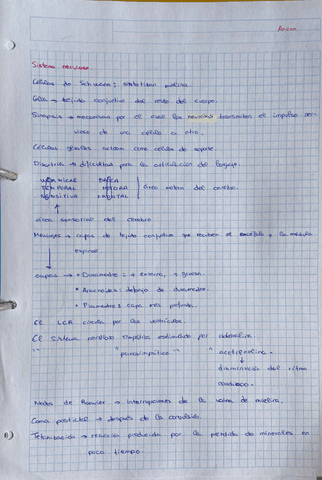 Anexo
Sistema nervioso.
Células de Schwann: sintetizan mielina.
Glía → tejido conjuntivo del resto del cuerpo.
Sinapsis → mecanismo por el cual las neuronas transmiten el impulso ner-
vioso de una célula a otra.
Células gliales actúan como células de soporte.
Disartria → dificultad para la articulación del lenguaje.
WERNICKE BROCA
TEMPORAL MOTORA área motora del cerebro.
SENSITIVA FRONTAL
área sensorial del cerebro
Meninges → capas de tejido conjuntivo que recubren el encéfalo y la médula
espinal.
capas → • Duramadre: + externa, + gruesa.
• Aracnoides: debajo de duramadre.
• Piamadre: capa más profunda.
El LCR circula por los ventrículos.
El sistema nervioso simpático estimulado por adrenalina.
" " parasimpático " " acetilcolina.
↓
disminución del ritmo
cardiaco.
Nodos de Ranvier → Interrupciones de la vaina de mielina.
Coma postictal → después de la convulsión.
Tetanización → reacción producida por la pérdida de minerales en
poco tiempo.